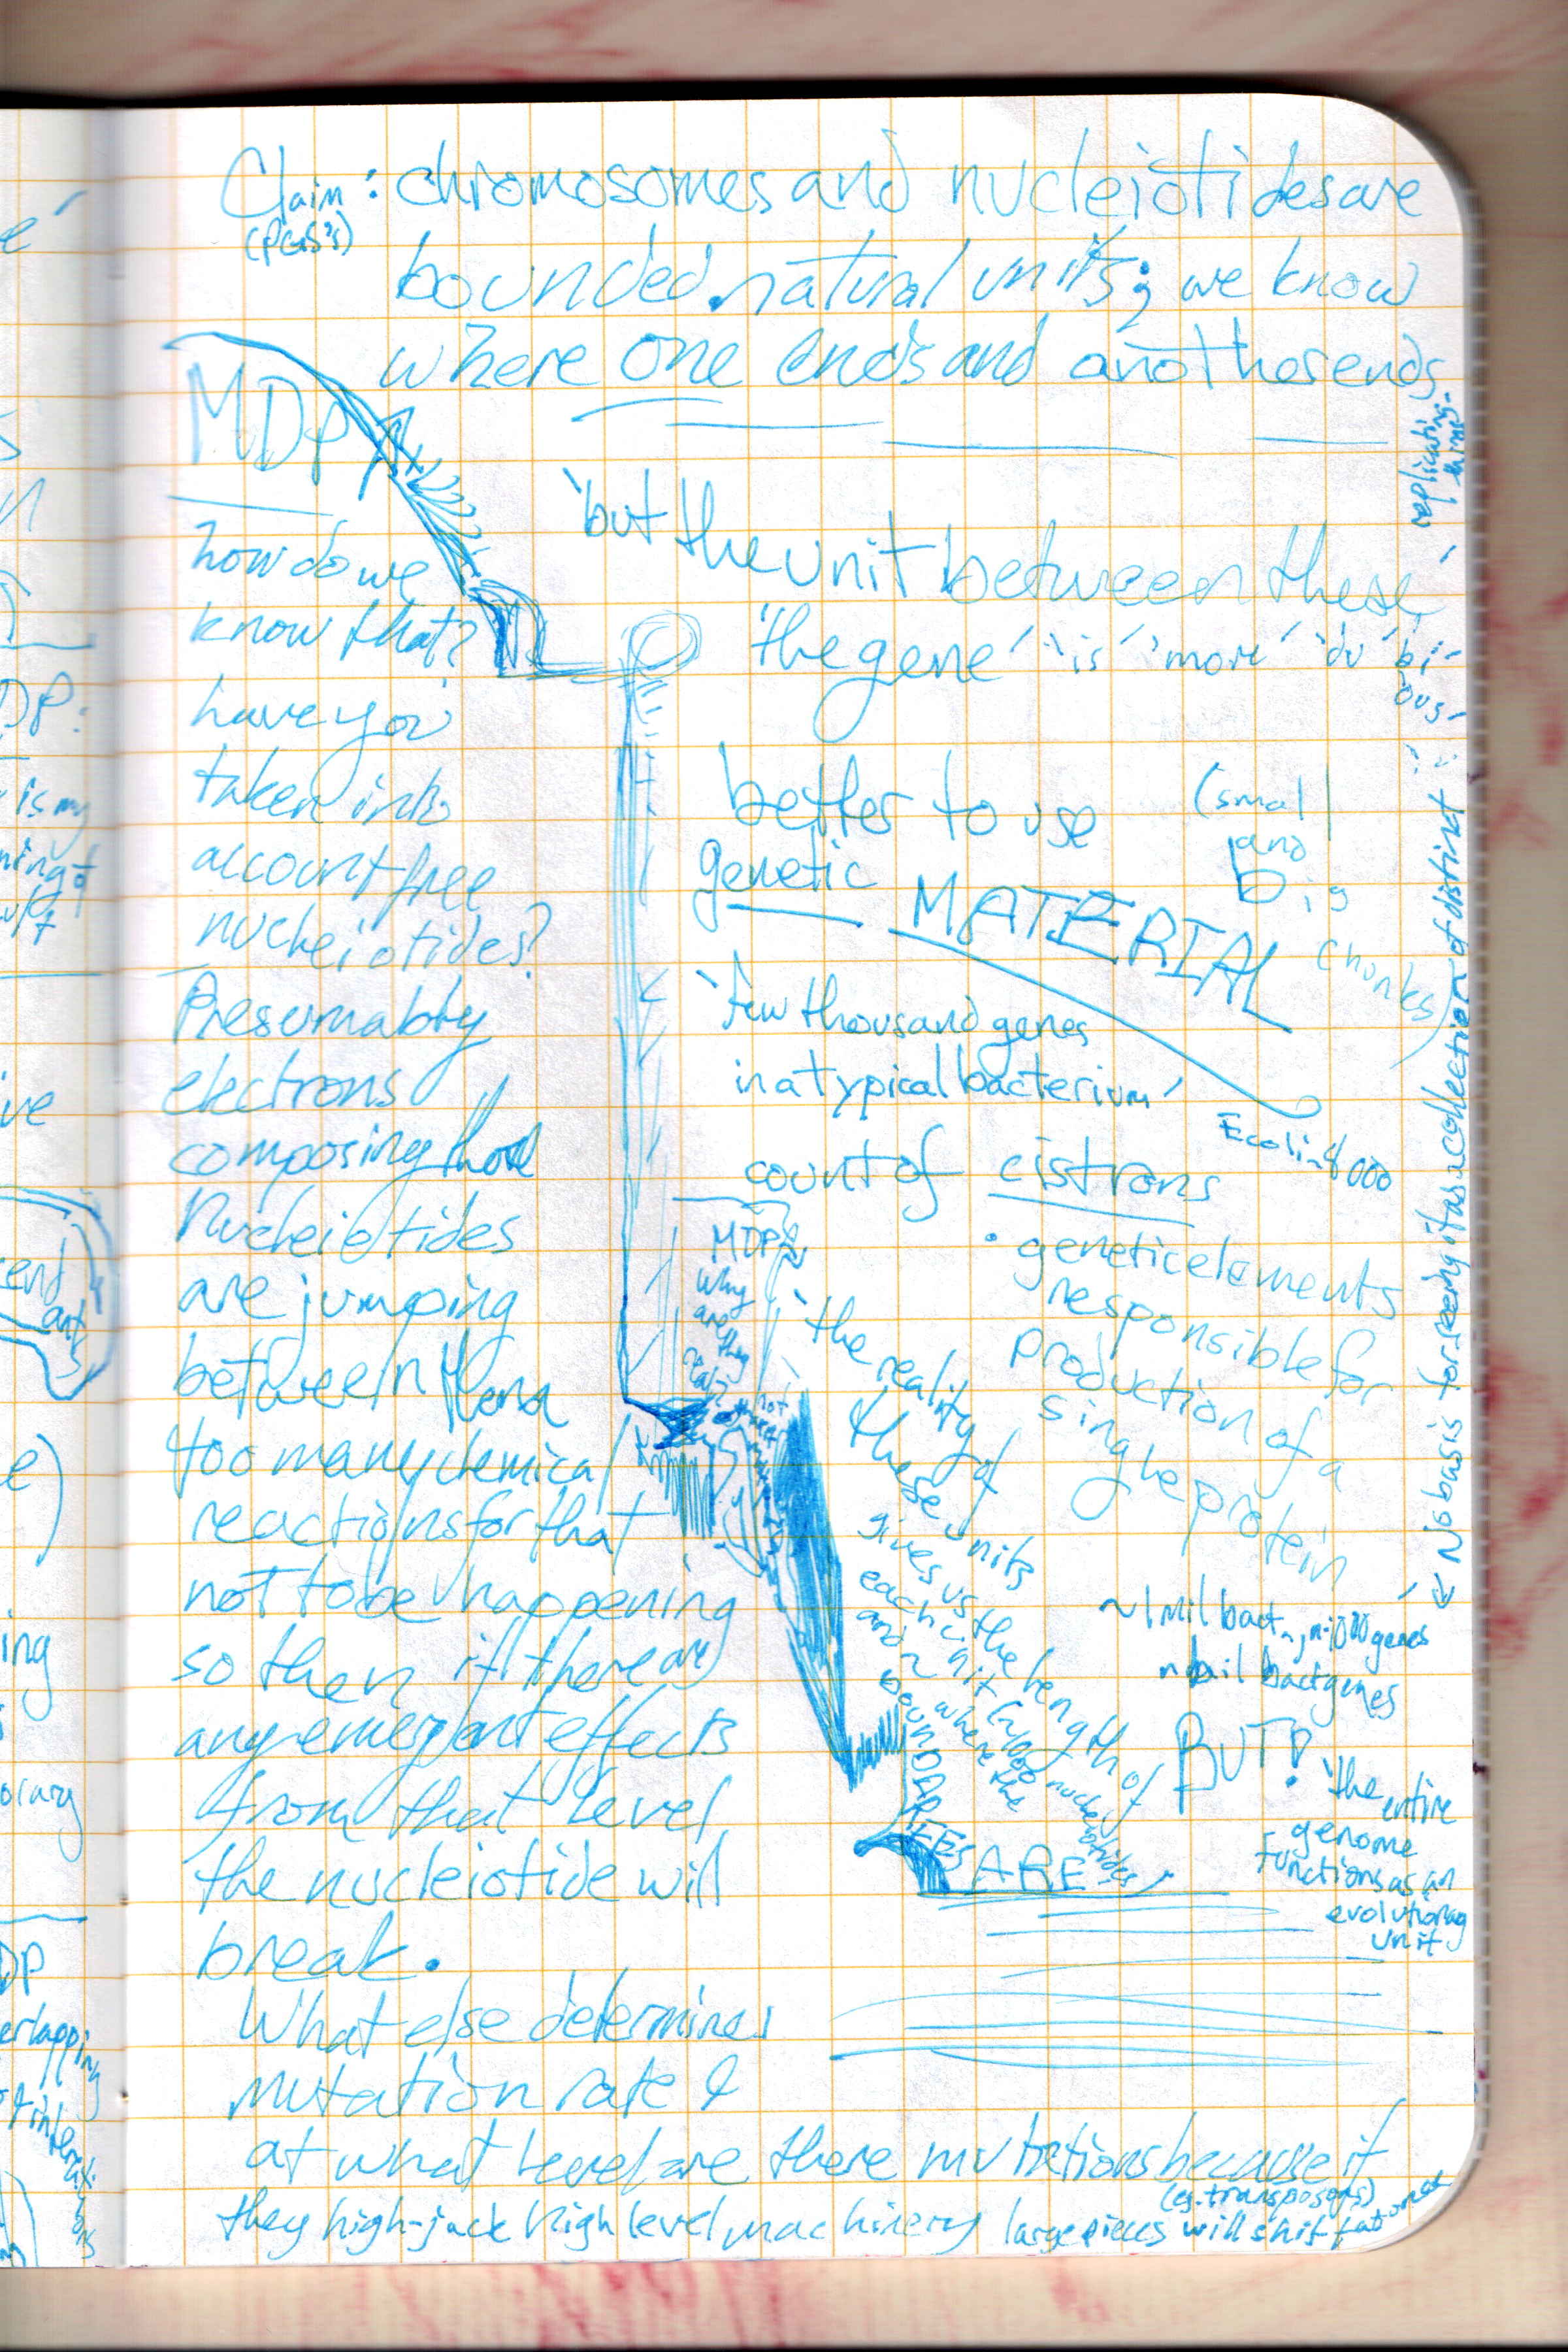 Claim: chromosomes and nucleiotides are
(PGS's)
bounded natural units; we know
where one ends and another ends
MDP
how do we
know that?
have you
taken into
account free
nucleiotides?
Presumably
electrons
composing those
nucleiotides
are jumping
between them
too many chemical
reactions for that
not to be happening
so then if there are
any emergent effects
from that level
the nucleiotide will
break.
What else determines
mutation rate &
at what level are there mutations because if
they high-jack high level machinery large pieces will shift at once
(eg. transposons)
'but the unit between these'
'the gene' 'is' 'more' 'du'bi-
ous'
better to use
genetic MATERIAL
(small
and
big
chunks)
'few thousand genes
in a typical bacterium'
Ecoli~4000
count of cistrons
• genetic elements
responsible for
production of a
single protein
MDP
why
are they
'the reality of
these units
gives us the length of
each unit (~1000 nucleotides)
and where the
BOUNDARIES ARE'
~1 mil bact
bact genes
BUT! 'the entire
genome
functions as an
evolutionary
unit
← No basis for seeing it as a collection of distinct
replicating